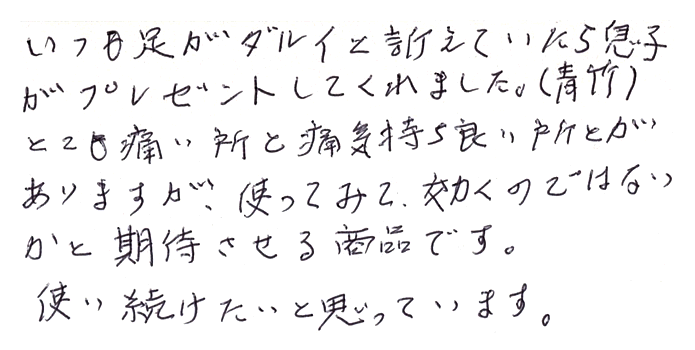 いつも足がダルイと訴えていたら息子
がプレゼントしてくれました。(青竹)
とても痛い所と痛気持ち良い所とが
ありますが、使ってみて、効くのではない
かと期待させる商品です。
使い続けたいと思っています。